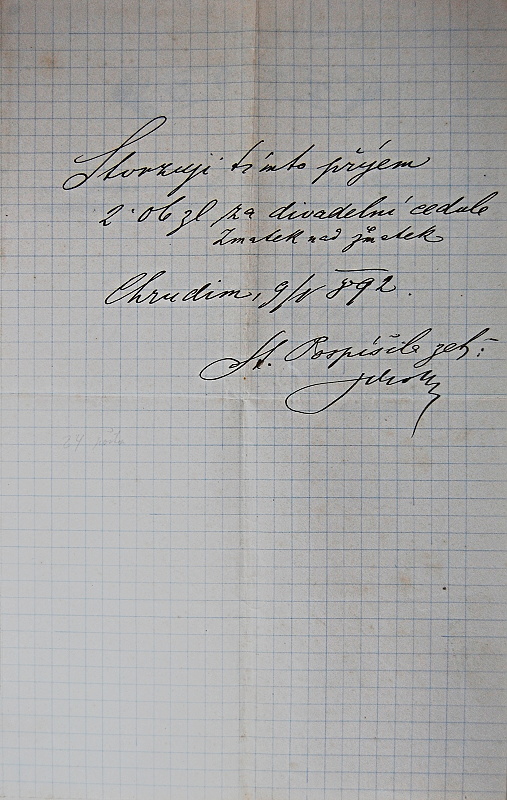 Stvrzuji tímto příjem
2·06 zl za divadelní cedule
Zmatek nad zmatek
Chrudim, 9/V 892.
St. Pospíšila zeť: